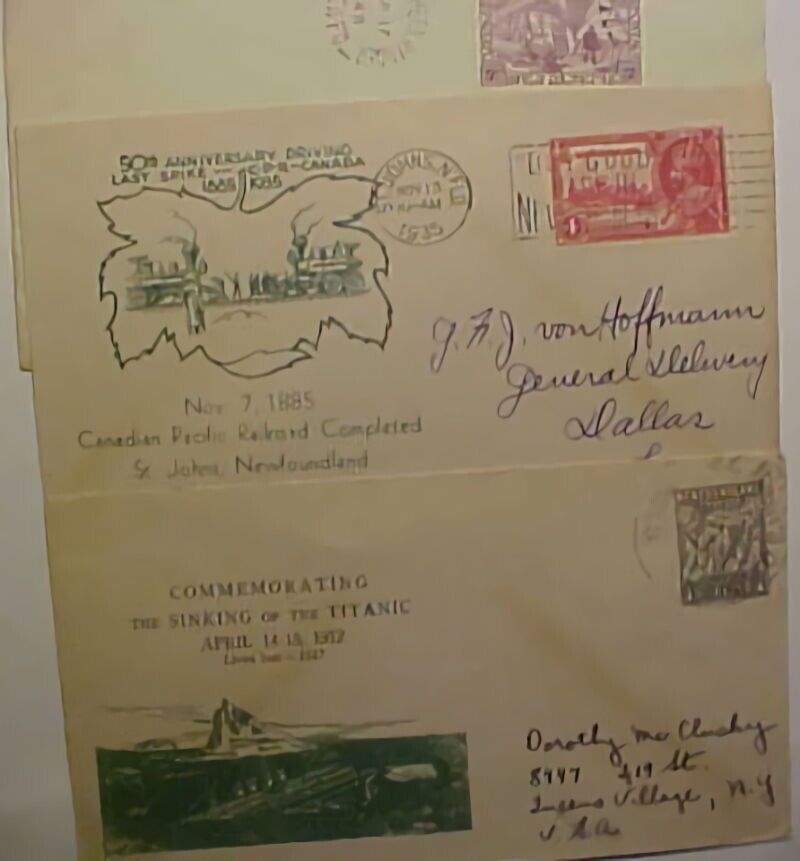 50TH ANNIVERSARY DRIVING
LAST SPIKE — C.P.R. — CANADA
1885 1935
JOHN'S. NFLD
NOV 13
AM
1935
G. F. J. von Hoffmann
General Delivery
Dallas
Nov 7, 1885
Canadian Pacific Railroad Completed
St Johns, Newfoundland
COMMEMORATING
THE SINKING OF THE TITANIC
APRIL 14-15, 1912
Lives lost – 1517
Dorothy Mc Clusky
8447 219 St.
Queens Village, N.Y
U.S.A